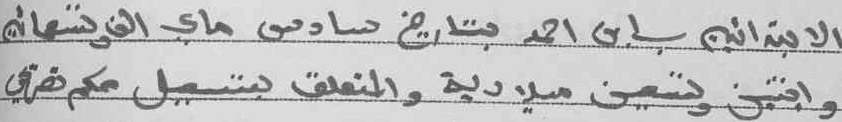 الابتدائية بابن احمد بتاريخ سادس ماي الف وتسعمائة
واثنين وتسعين ميلادية والمتعلق بتسجيل حكم شرقي